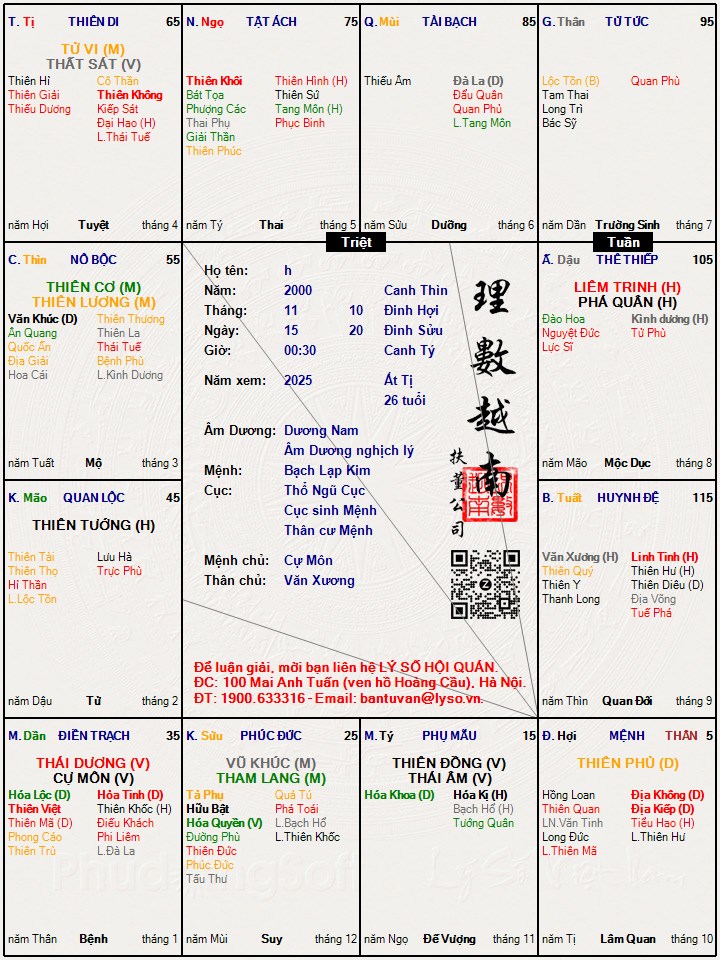 T. Tị THIÊN DI 65
TỬ VI (M)
THẤT SÁT (V)
Thiên Hỉ Cô Thần
Thiên Giải Thiên Không
Thiếu Dương Kiếp Sát
Đại Hao (H)
L.Thái Tuế
năm Hợi Tuyệt tháng 4
N. Ngọ TẬT ÁCH 75
Thiên Khôi Thiên Hình (H)
Bát Tọa Thiên Sứ
Phượng Các Tang Môn (H)
Thai Phụ Phục Binh
Giải Thần
Thiên Phúc
năm Tý Thai tháng 5
Q. Mùi TÀI BẠCH 85
Thiếu Âm Đà La (D)
Đẩu Quân
Quan Phủ
L.Tang Môn
năm Sửu Dưỡng tháng 6
G. Thân TỬ TỨC 95
Lộc Tồn (B) Quan Phù
Tam Thai
Long Trì
Bác Sỹ
năm Dần Trường Sinh tháng 7
Triệt
Tuần
C. Thìn NÔ BỘC 55
THIÊN CƠ (M)
THIÊN LƯƠNG (M)
Văn Khúc (D) Thiên Thương
Ân Quang Thiên La
Quốc Ấn Thái Tuế
Địa Giải Bệnh Phù
Hoa Cái L.Kình Dương
năm Tuất Mộ tháng 3
Họ tên: h
Năm: 2000 Canh Thìn
Tháng: 11 10 Đinh Hợi
Ngày: 15 20 Đinh Sửu
Giờ: 00:30 Canh Tý
Năm xem: 2025 Ất Tị
26 tuổi
Âm Dương: Dương Nam
Âm Dương nghịch lý
Mệnh: Bạch Lạp Kim
Cục: Thổ Ngũ Cục
Cục sinh Mệnh
Thân cư Mệnh
Mệnh chủ: Cự Môn
Thân chủ: Văn Xương
理數越南
扶董公司
Để luận giải, mời bạn liên hệ LÝ SỐ HỘI QUÁN.
ĐC: 100 Mai Anh Tuấn (ven hồ Hoàng Cầu), Hà Nội.
ĐT: 1900.633316 - Email: bantuvan@lyso.vn.
Ấ. Dậu THÊ THIẾP 105
LIÊM TRINH (H)
PHÁ QUÂN (H)
Đào Hoa Kình dương (H)
Nguyệt Đức Tử Phù
Lực Sĩ
năm Mão Mộc Dục tháng 8
K. Mão QUAN LỘC 45
THIÊN TƯỚNG (H)
Thiên Tài Lưu Hà
Thiên Thọ Trực Phù
Hỉ Thần
L.Lộc Tồn
năm Dậu Tử tháng 2
B. Tuất HUYNH ĐỆ 115
Văn Xương (H) Linh Tinh (H)
Thiên Quý Thiên Hư (H)
Thiên Y Thiên Diêu (D)
Thanh Long Địa Võng
Tuế Phá
năm Thìn Quan Đới tháng 9
M. Dần ĐIỀN TRẠCH 35
THÁI DƯƠNG (V)
CỰ MÔN (V)
Hóa Lộc (D) Hỏa Tinh (D)
Thiên Việt Thiên Khốc (H)
Thiên Mã (D) Điếu Khách
Phong Cáo Phi Liêm
Thiên Trù L.Đà La
năm Thân Bệnh tháng 1
K. Sửu PHÚC ĐỨC 25
VŨ KHÚC (M)
THAM LANG (M)
Tả Phụ Quả Tú
Hữu Bật Phá Toái
Hóa Quyền (V) L.Bạch Hổ
Đường Phù L.Thiên Khốc
Thiên Đức
Phúc Đức
Tấu Thư
năm Mùi Suy tháng 12
M. Tý PHỤ MẪU 15
THIÊN ĐỒNG (V)
THÁI ÂM (V)
Hóa Khoa (D) Hóa Kị (H)
Bạch Hổ (H)
Tướng Quân
năm Ngọ Đế Vượng tháng 11
Đ. Hợi MỆNH THÂN 5
THIÊN PHỦ (D)
Hồng Loan Địa Không (D)
Thiên Quan Địa Kiếp (D)
LN.Văn Tinh Tiểu Hao (H)
Long Đức L.Thiên Hư
L.Thiên Mã
năm Tị Lâm Quan tháng 10